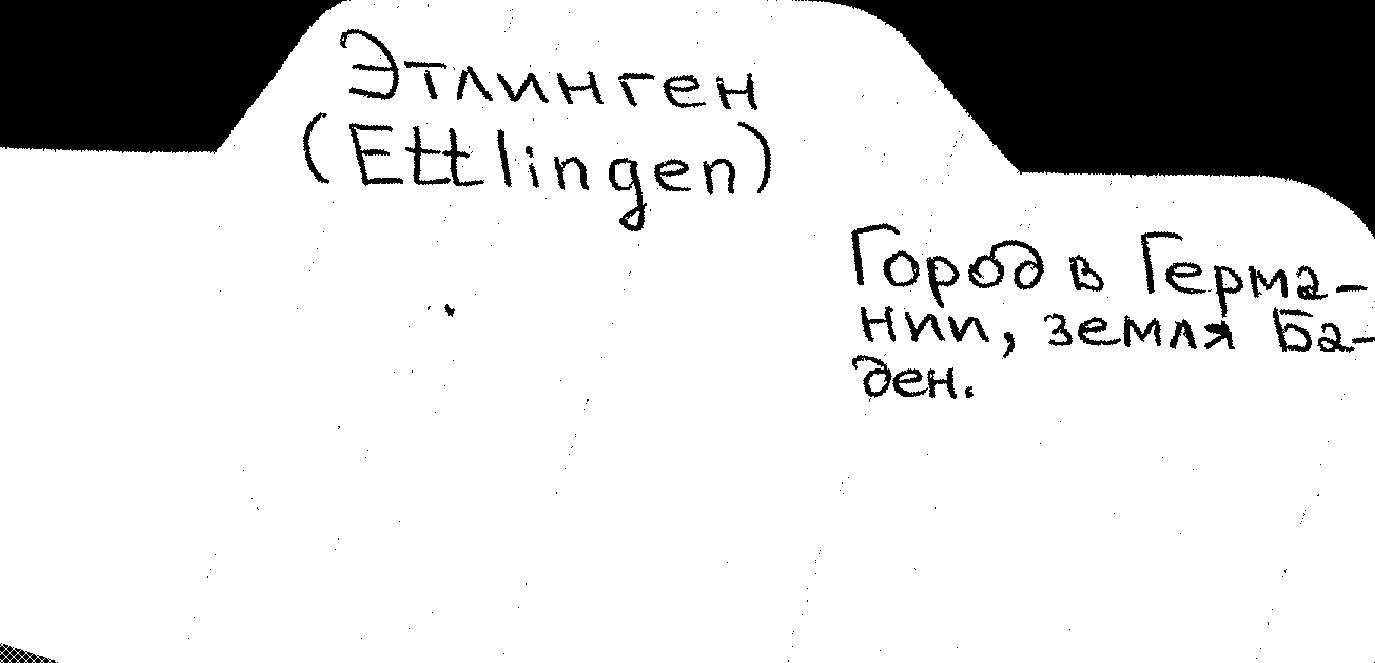 Этлинген
(Ettlingen)
Город в Герма-
нии, земля Ба-
ден.